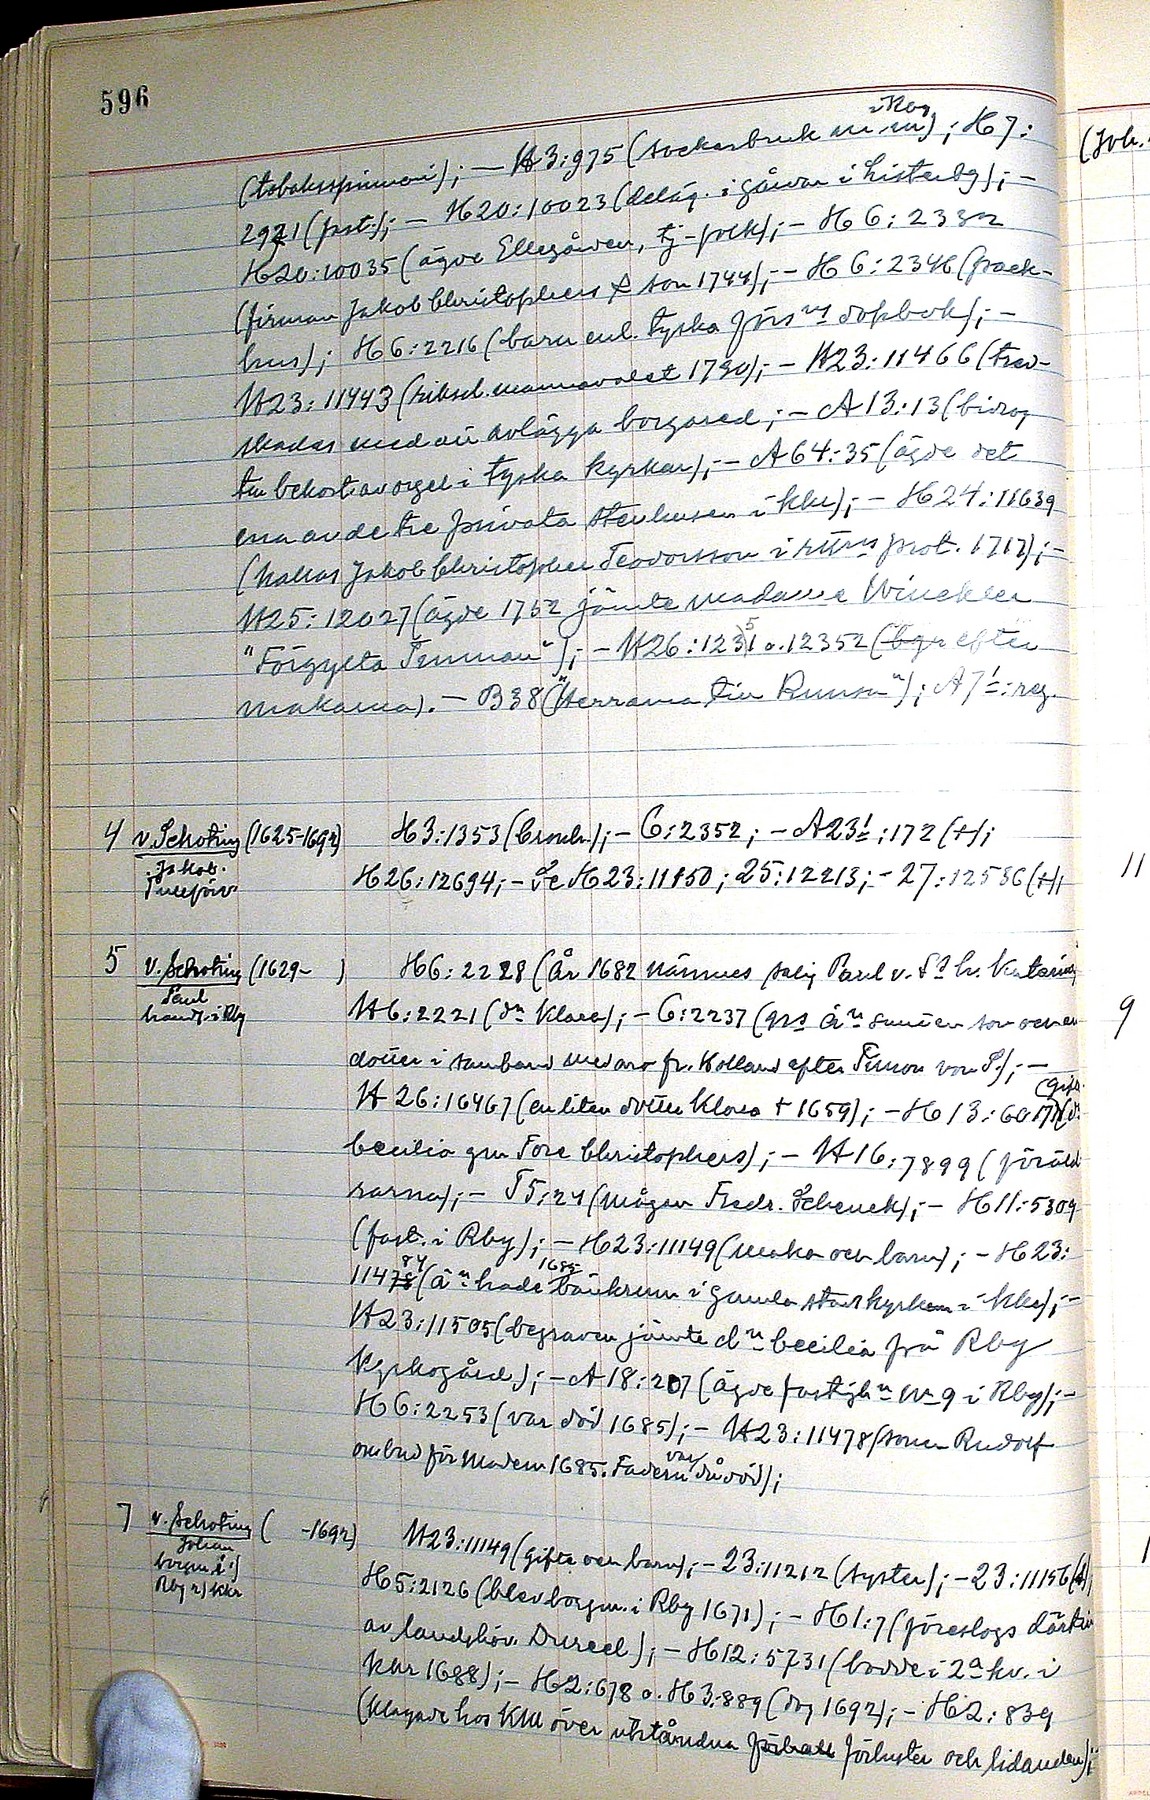 596
i Kbg
(tobaksspinneri); — H3:975 (sockerbruk m.m); H7:
2921 (fast.); — H20:10023 (deläg. i gården i Listerby); —
H20:10035 (ägde Ellegården, tj-folk); — H6:2332
(firman Jakob Christophers & son 1744); — H6:2346 (pack-
hus); H6:2216 (barn enl. tyska förs:ns dopbok); —
H23:11443 (riksd.mannavalet 1730); — H23:11466 (tred-
skades med att avlägga borgared; — A13:13 (bidrog
till bekost. av orgel i tyska kyrkan); — A64:35 (ägde det
ena av de tre privata stenhusen i kkr); — H24:11639
(kallas Jakob Christopher Teodorsson i rttns prot. 1717); —
H25:12027 (ägde 1752 jämte madame Winckler
"Förgyllta Tunnan"); — H26:12351 o. 12352 (bgr efter
makarna). — B38 ("Herrarna till Runson"); A7¹:reg.
4 v. Schoting (1625-1692) H3:1353 (Bromb.); — 6:2352; — A23¹:172 (+);
Jakob.
Tullförv
H26:12694; — Se H23:11150; 25:12213; — 27:12586 (+);
11
5 v. Schoting (1629- ) H6:2228 (År 1682 nämnes salig Paul v. S:s h. Katarina
Paul
handl. i Rby
H6:2221 (dn Klara); — 6:2237 (grs än son och en
9
dotter i samband med arv fr. Holland efter Simon von S.); —
H26:16467 (en liten dotter Klara + 1659); — H13:6017 (gift
Cecilia gm Tore Christophers); — H16:7899 (föräld
rarna); — T5:24 (mågen Fredr. Schenck); — H11:5309
(fast. i Rby); — H23:11149 (maka och barn); — H23:
11478 84 (än hade 1685 bänkrum i gamla stadskyrkan i kkr); —
H23:11505 (begraven jämte dn Cecilia på Rby
kyrkogård); — A18:207 (ägde fastighn nr 9 i Rby); —
H6:2253 (var död 1685); — H23:11478 (sonen Rudolf
ombud för modern 1685. Fadern var då död);
7 v. Schoting ( -1692) H23:11149 (gifte och barn); — 23:11212 (syster); — 23:11156 (+);
Johan
borgm i 1)
Rby 2) kkr
H5:2126 (blev borgm. i Rby 1671); — H1:7 (föreslogs därtill
av landshöv. Dureel); — H12:5731 (bodde i 2a kv. i
kkr 1688); — H2:678 o. H3:889 (dog 1692); — H2:839
(klagade hos KM över utståndna förluster och lidanden);
(Joh.